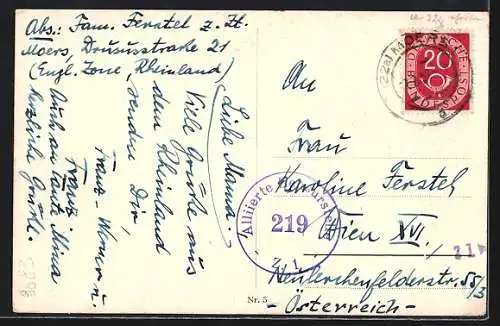 Abs.: Fam. Ferstel z. Zt.
Moers, Drususstraße 21
(Engl. Zone, Rheinland)
Liebe Mama
Viele Grüße aus
dem Rheinland
senden Dir
Franz-Werner u.
Franz
Auch an Tante Mina
herzliche Grüße.
An
Frau
Karoline Ferstel
Wien XVI,
Neulerchenfelderstr. 55/3
- Österreich -
(22a) MOERS
DEUTSCHE BUNDESPOST
20
Alliierte Zensurstelle
219
Nr. 5